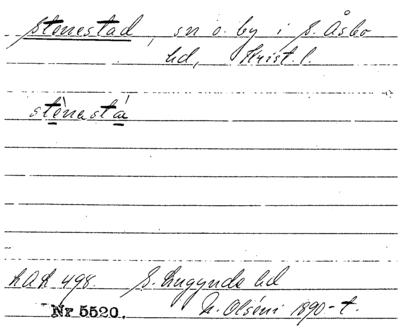 Stenestad, sn o. by i S. Åsbo
hd, Krist. l.
stènastá
LAL 498. S. Luggude hd
N. Olséni 1890-t.
Nr 5520.